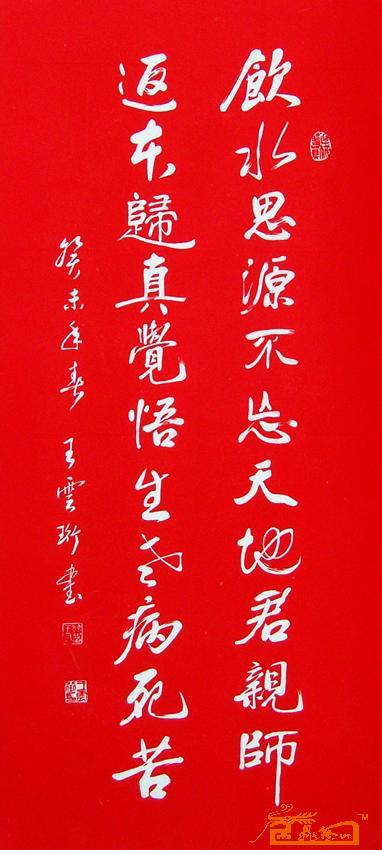 飲水思源不忘天地君親師
返本歸真覺悟生老病死苦
癸未年春 王雲珩書
TM